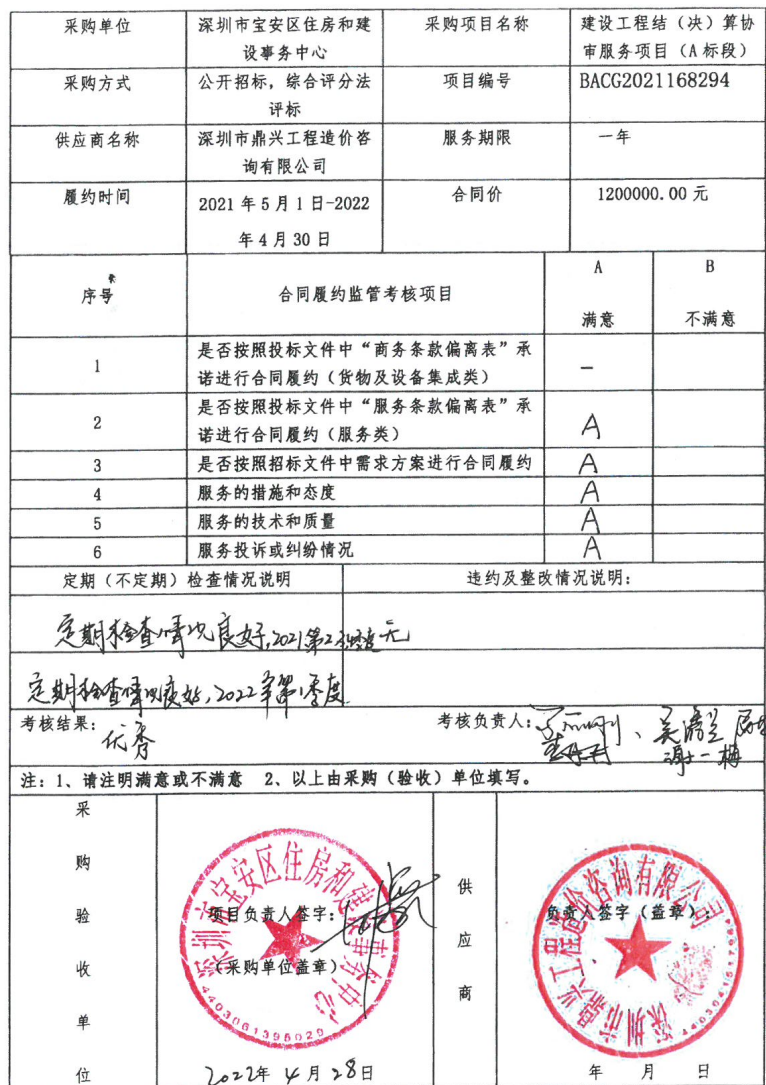 采购单位 深圳市宝安区住房和建 采购项目名称 建设工程结（决）算协
设事务中心 审服务项目（A标段）
采购方式 公开招标，综合评分法 项目编号 BACG2021168294
评标
供应商名称 深圳市鼎兴工程造价咨 服务期限 一年
询有限公司
履约时间 2021年5月1日-2022 合同价 1200000.00元
年4月30日
序号 合同履约监管考核项目 A B
满意 不满意
1 是否按照投标文件中“商务条款偏离表”承 —
诺进行合同履约（货物及设备集成类）
2 是否按照投标文件中“服务条款偏离表”承 A
诺进行合同履约（服务类）
3 是否按照招标文件中需求方案进行合同履约 A
4 服务的措施和态度 A
5 服务的技术和质量 A
6 服务投诉或纠纷情况 A
定期（不定期）检查情况说明 违约及整改情况说明：
定期检查情况良好,2021第2 无
定期检查情况良好,2022年第1季度
考核结果： 优秀 考核负责人：
谢一梅
注：1、请注明满意或不满意 2、以上由采购（验收）单位填写。
采购验收单位
深圳市宝安区住房和建设事务中心
项目负责人签字：
（采购单位盖章）
4403061395029
2022年4月28日
供应商
深圳市鼎兴工程造价咨询有限公司
负责人签字（盖章）：
年 月 日